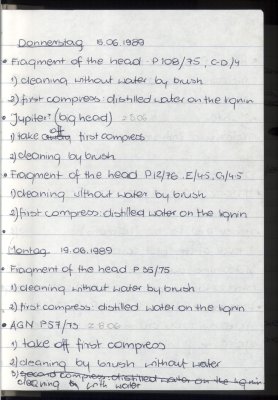 Donnerstag 15.06.1989
• Fragment of the head P108/75, C-D/4
1) cleaning without water by brush
2) first compress: distilled water on the lignin
• Jupiter: (big head) 2506
1) take off first compress
2) cleaning by brush
• Fragment of the head P12/76. E/4-5, G/4-5
1) cleaning without water by brush
2) first compress: distilled water on the lignin
•
Montag 19.06.1989
• Fragment of the head P 35/75
1) cleaning without water by brush
2) first compress: distilled water on the lignin
• AGN P57/73 2806
1) take off first compress
2) cleaning by brush without water
3) second compress: distilled water on the lignin
cleaning by with water